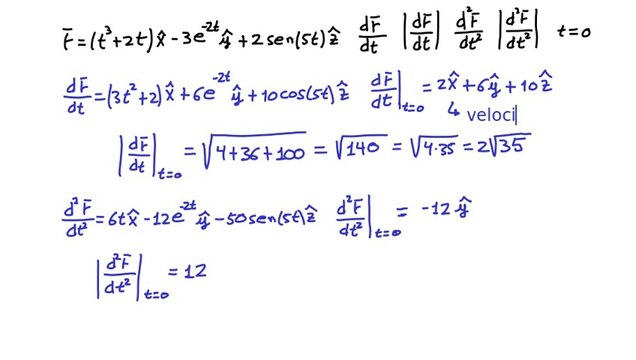 r̄=(t³+2t)x̂-3e⁻²ᵗŷ+2sen(5t)ẑ dr̄/dt |dr̄/dt| d²r̄/dt² |d²r̄/dt²| t=0
dr̄/dt=(3t²+2)x̂+6e⁻²ᵗŷ+10cos(5t)ẑ dr̄/dt|t=0 = 2x̂+6ŷ+10ẑ
↳ veloci
|dr̄/dt|t=0 = √(4+36+100) = √140 = √(4·35) = 2√35
d²r̄/dt²=6tx̂-12e⁻²ᵗŷ-50sen(5t)ẑ d²r̄/dt²|t=0 = -12ŷ
|d²r̄/dt²|t=0 = 12